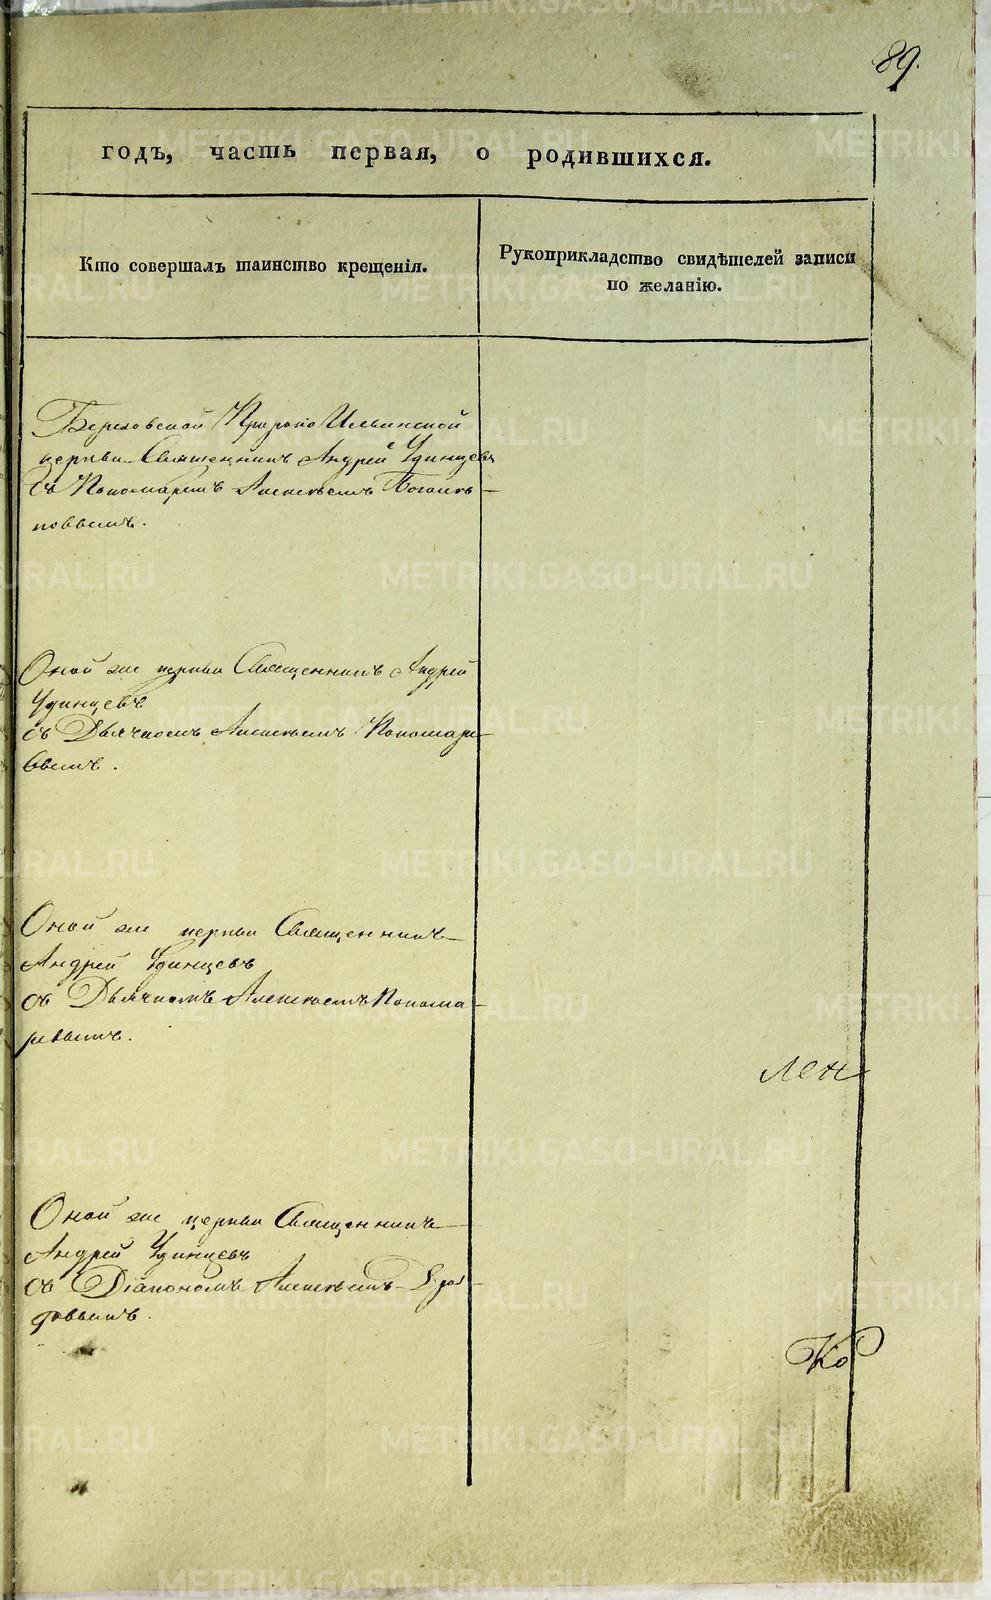 89.
годъ, часть первая, о родившихся.
Кто совершалъ таинство крещенія.
Рукоприкладство свидѣтелей записи
по желанію.
Березовской Пророко Ильинской
церкви Священникъ Андрей Удинцевъ
Съ Пономаремъ Алексѣемъ
Оной же церкви Священникъ Андрей
Удинцевъ
съ Дьячкомъ Алексѣемъ Пономаре-
вымъ.
Оной же церкви Священникъ
Андрей Удинцевъ
съ Дьячкомъ Алексѣемъ Понома-
ревымъ.
лен
Оной же церкви Священникъ
Андрей Удинцевъ
съ Діакономъ Алексѣемъ
Ко
METRIKI.GASO-URAL.RU